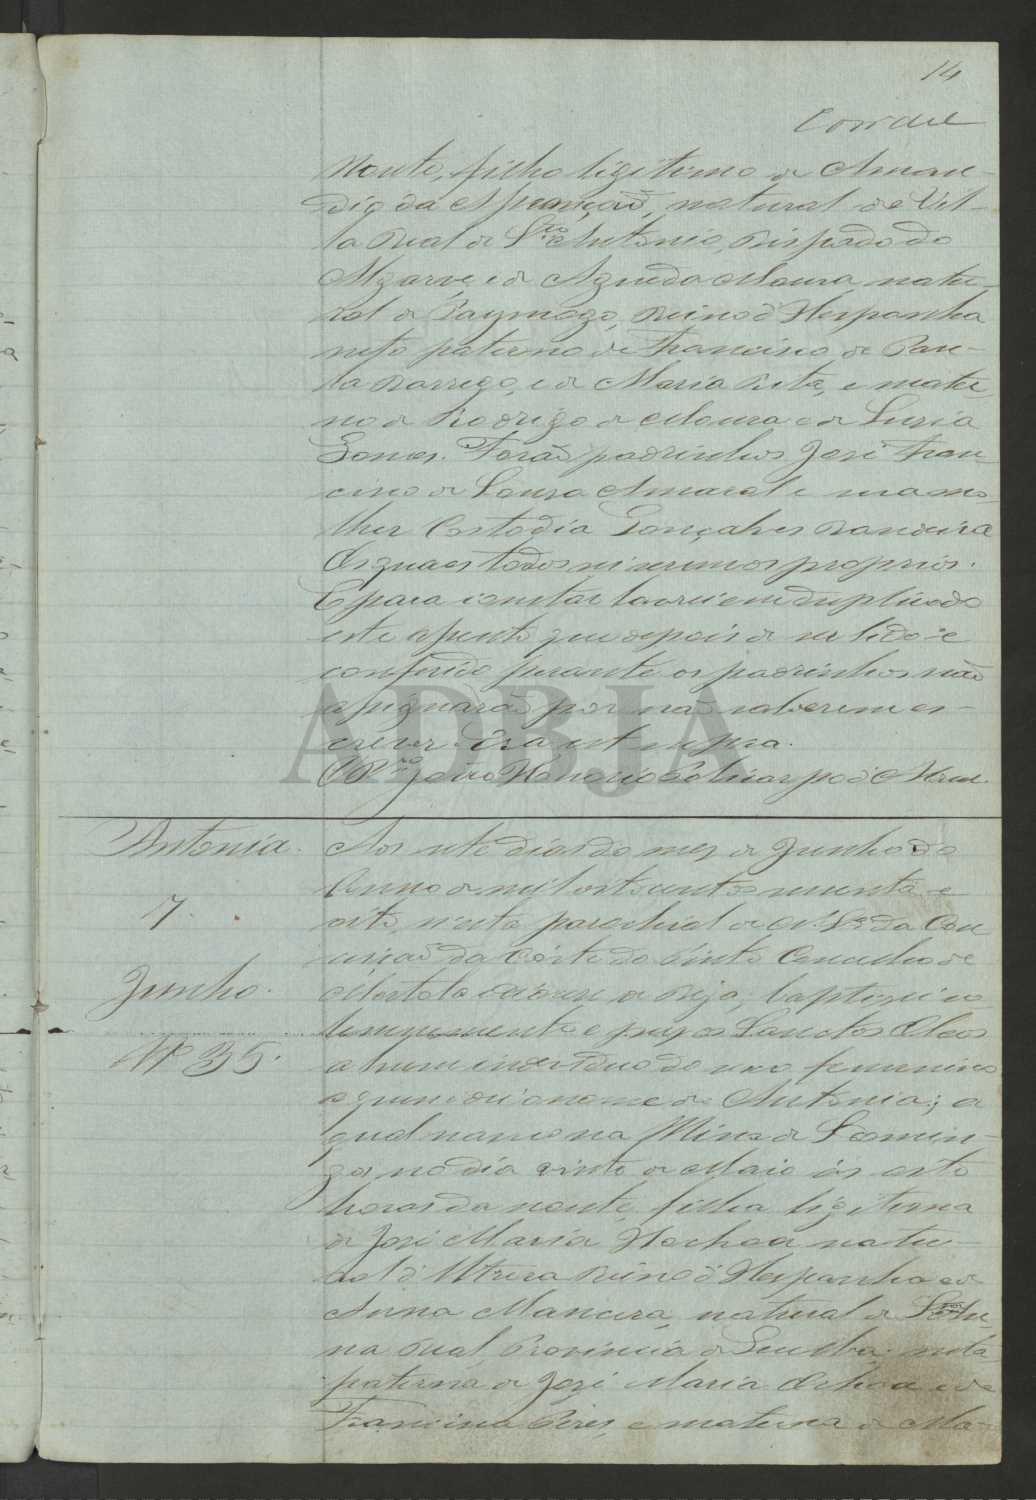 14
noute, filho ligitimo de Aman-
dio da Assumçaõ, natural de Vil-
la Rial de Sto Antonio, Bispado do
Algarve, e de Agueda Moura, natu-
ral de Paymogo, Reino d'Hespanha
neto paterno de Francisco de Pau-
la Borrego, e de Maria Rita, e mater
no de Rodrigo de Moura e de Luzia
Gomes. Foraõ padrinhos José Fran-
cisco de Souza Amaral e sua mo-
lher Costodia Gonçalves Bandeira
Os quaes todos sei serem os proprios.
E para constar lavrei em duplicado
este assento que depois de ser lido e
conferido perante os padrinhos naõ
assignaraõ por naõ saberem es-
crever. Era ut supra.
O Ro Joaõ Honorio Policarpo d'
Antonia.
7.
Junho.
Nº 35.
Aos sete dias do mes de Junho do
Anno de mil oitocentos secenta e
oito, n'esta parochial de N. Sra da Con
ceiçaõ da Córte do Pinto Concelho de
Mertola Diocese de Beja, baptizei so
lemnemente e puz os Sanctos Oleos
a hum individuo do sexo feminino
a quem dei o nome de Antonia; a
qual nasceo na Mina de S. Domin-
gos no dia vinte de Maio ás oito
horas da noute, filha ligitima
de José Maria Hochoa natu-
ral d'Utrera Reino d'Hespanha e de
Anna Mancera, natural de
na Rial, Provincia de neta
paterna de José Maria Ochoa e de
Francisca Peres, e materna de Ma-
ADBJA